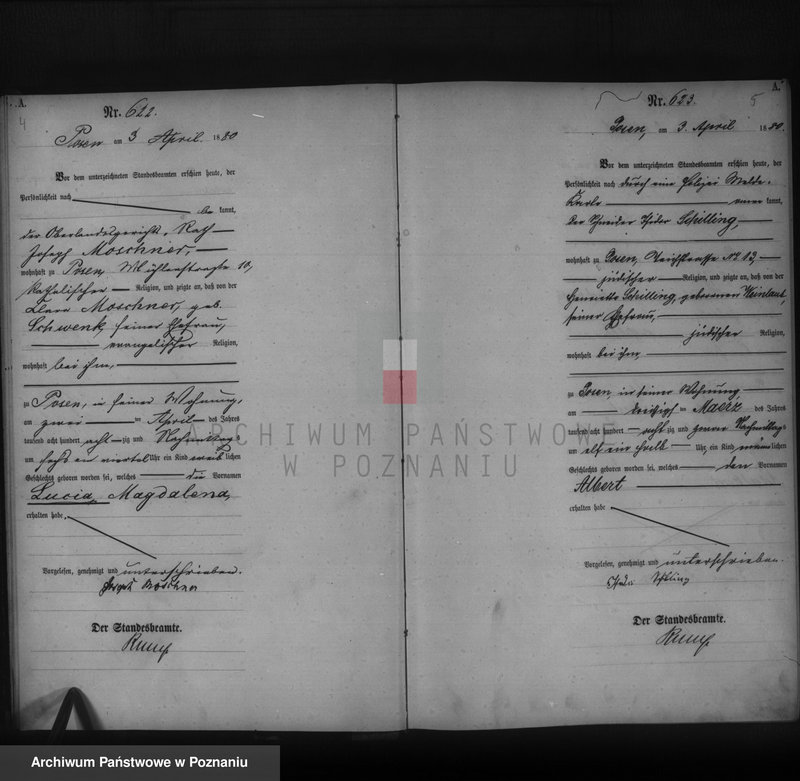 A.
4
Nr. 622.
Posen am 3 April 1880
Vor dem unterzeichneten Standesbeamten erschien heute, der
Persönlichkeit nach
be kannt,
der Oberlandesgerichts-Rath
Joseph Moschner,
wohnhaft zu Posen, Mühlenstrasse 10,
katholischer Religion, und zeigte an, daß von der
Clara Moschner, geb.
Schwenk, seiner Ehefrau,
evangelischer Religion,
wohnhaft bei ihm,
zu Posen, in seiner Wohnung,
am zwei ten April des Jahres
tausend acht hundert acht zig und Nachmittags
um sechs ein viertel Uhr ein Kind weib lichen
Geschlechts geboren worden sei, welches die Vornamen
Lucia, Magdalena,
erhalten habe
Vorgelesen, genehmigt und unterschrieben.
Joseph Moschner
Der Standesbeamte.
A.
5
Nr. 623.
Posen, am 3. April 1880.
Vor dem unterzeichneten Standesbeamten erschien heute, der
Persönlichkeit nach durch eine Polizei Melde-
Karte aner kannt,
der Schneider Isidor Schilling,
wohnhaft zu Posen, Teichstrasse No 13,
jüdischer Religion, und zeigte an, daß von der
Henriette Schilling, geborenen Weinlaub
seiner Ehefrau,
jüdischer Religion,
wohnhaft bei ihm,
zu Posen, in seiner Wohnung
am dreißigsten Maerz des Jahres
tausend acht hundert acht zig und zwar Nachmittags
um elf ein halb Uhr ein Kind männ lichen
Geschlechts geboren worden sei, welches den Vornamen
Albert
erhalten habe
Vorgelesen, genehmigt und unterschrieben.
Isidor Schilling
Der Standesbeamte.
ARCHIWUM PAŃSTWOWE
W POZNANIU
Archiwum Państwowe w Poznaniu